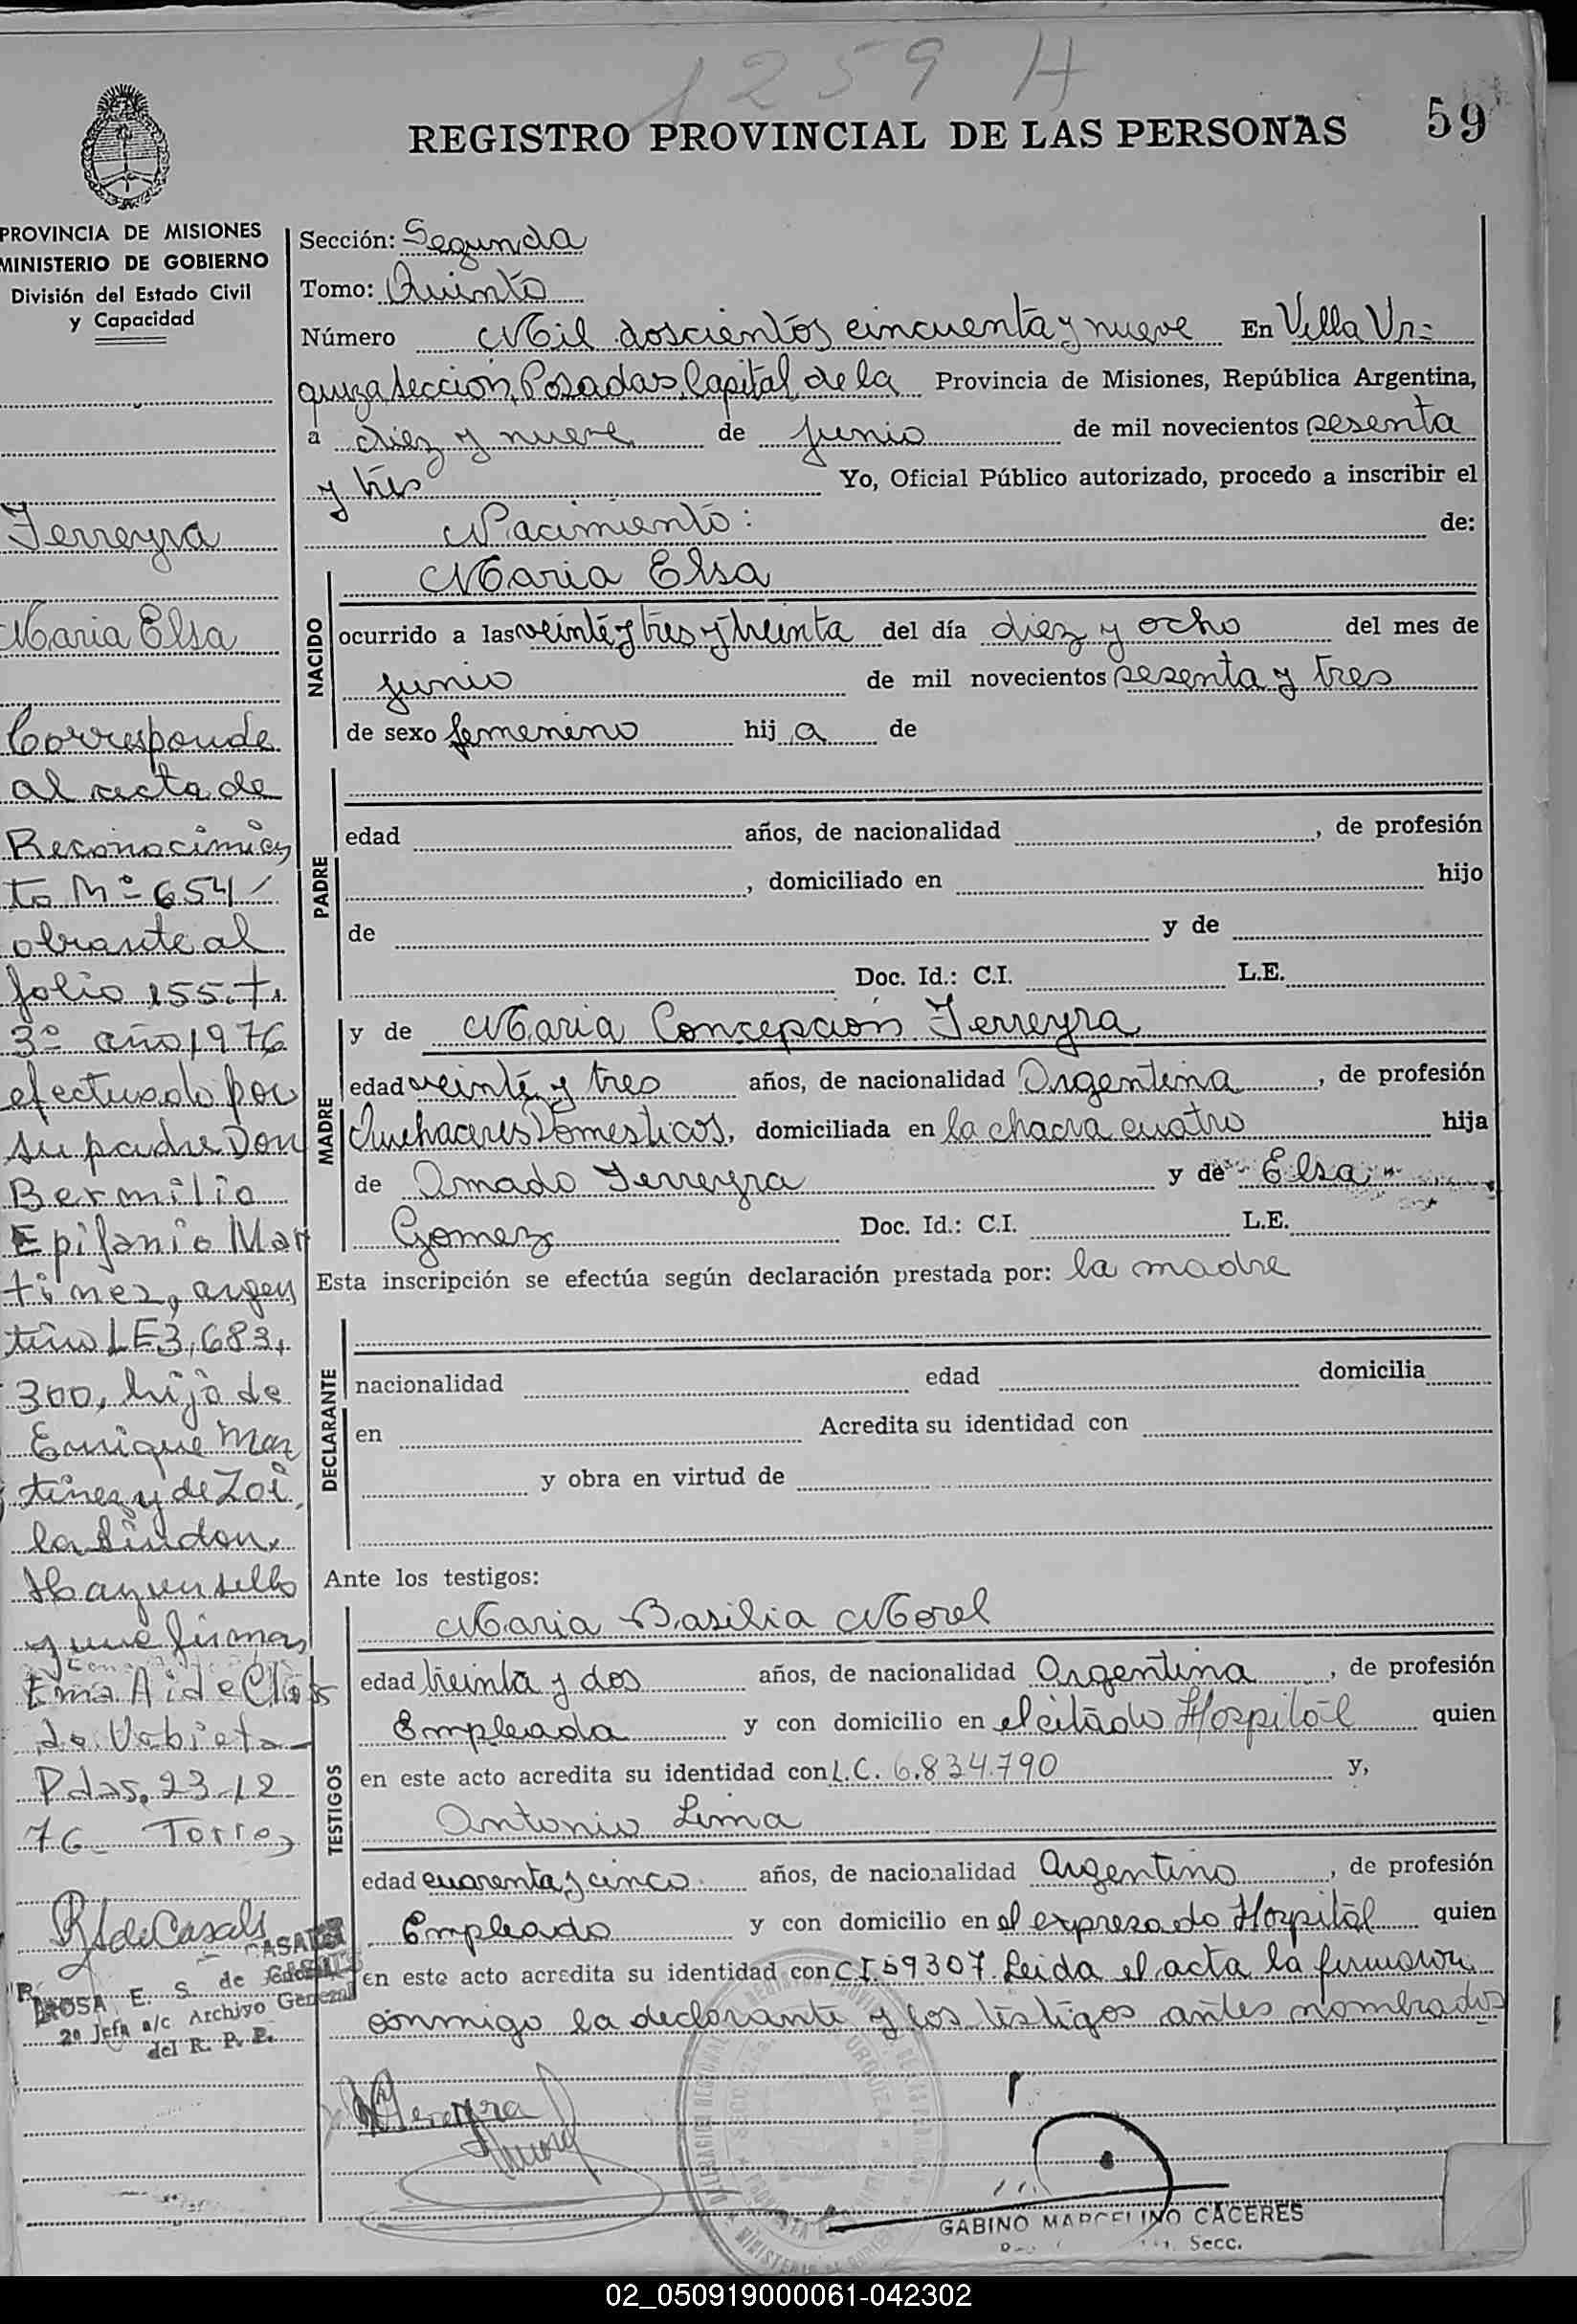 1259 H
REGISTRO PROVINCIAL DE LAS PERSONAS 59
PROVINCIA DE MISIONES
MINISTERIO DE GOBIERNO
División del Estado Civil
y Capacidad
Ferreyra
Maria Elsa
Corresponde
al acta de
Reconocimien
to Nº 654/
obrante al
folio 155. T.
3º año 1976
efectuado por
su padre Don
Bermilio
Epifanio Mar
tinez, argen
tino LE 3.683.
300, hijo de
Enrique Mar
tinez y de Zoi
la
Hay un sello
y una firma,
Ema Aide
de Ubieta
Pdas, 23-12
76 Torres
R S de Casals
ROSA E. S. de
2º Jefa a/c Archivo General
del R. P. P.
Sección: Segunda
Tomo: Quinto
Número Mil doscientos cincuenta y nueve En Villa Ur=
quiza Seccion, Posadas, Capital de la Provincia de Misiones, República Argentina,
a diez y nueve de junio de mil novecientos sesenta
y tres Yo, Oficial Público autorizado, procedo a inscribir el
Nacimiento: de:
NACIDO
Maria Elsa
ocurrido a las veinte y tres y treinta del día diez y ocho del mes de
junio de mil novecientos sesenta y tres
de sexo femenino hij a de
PADRE
edad años, de nacionalidad , de profesión
, domiciliado en hijo
de y de
Doc. Id.: C.I. L.E.
MADRE
y de Maria Concepción Ferreyra
edad veinte y tres años, de nacionalidad Argentina , de profesión
Quehaceres Domesticos, domiciliada en la chacra cuatro hija
de Amado Ferreyra y de Elsa
Gomez Doc. Id.: C.I. L.E.
Esta inscripción se efectúa según declaración prestada por: la madre
DECLARANTE
nacionalidad edad domicilia
en Acredita su identidad con
y obra en virtud de
Ante los testigos:
TESTIGOS
Maria Basilia Morel
edad treinta y dos años, de nacionalidad Argentina , de profesión
Empleada y con domicilio en el citado Hospital quien
en este acto acredita su identidad con L.C. 6.834.790 y,
Antonio Lima
edad cuarenta y cinco años, de nacionalidad Argentino , de profesión
Empleado y con domicilio en el expresado Hospital quien
en este acto acredita su identidad con C.I. 59307. Leida el acta la firmaron
conmigo la declarante y los testigos antes nombrados
Ferreyra
GABINO MARCELINO CACERES
Secc.
02_050919000061-042302